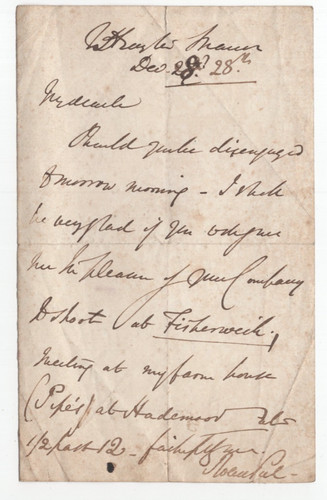 Manor
Dec. 28th 28th
My dear
Should you be disengaged
tomorrow morning – I shall
be very glad if you will give
me the pleasure of your Company
to shoot at Fisherwick,
meeting at my farm house
(Pipe's) at Hademoor
1/2 past 12 – faithfully yrs.